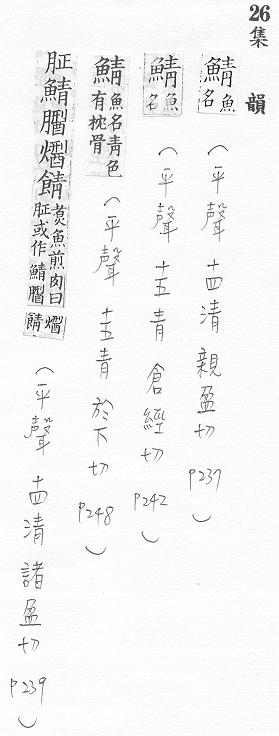 26集韻
鯖魚名（平聲 十四清 親盈切 P237）
鯖魚名（平聲 十五青 倉經切 P242）
鯖魚名青色有枕骨（平聲 十五青 於下切 P248）
䐿煮魚煎肉曰䐿或作鯖（平聲 十四清 諸盈切 P239）